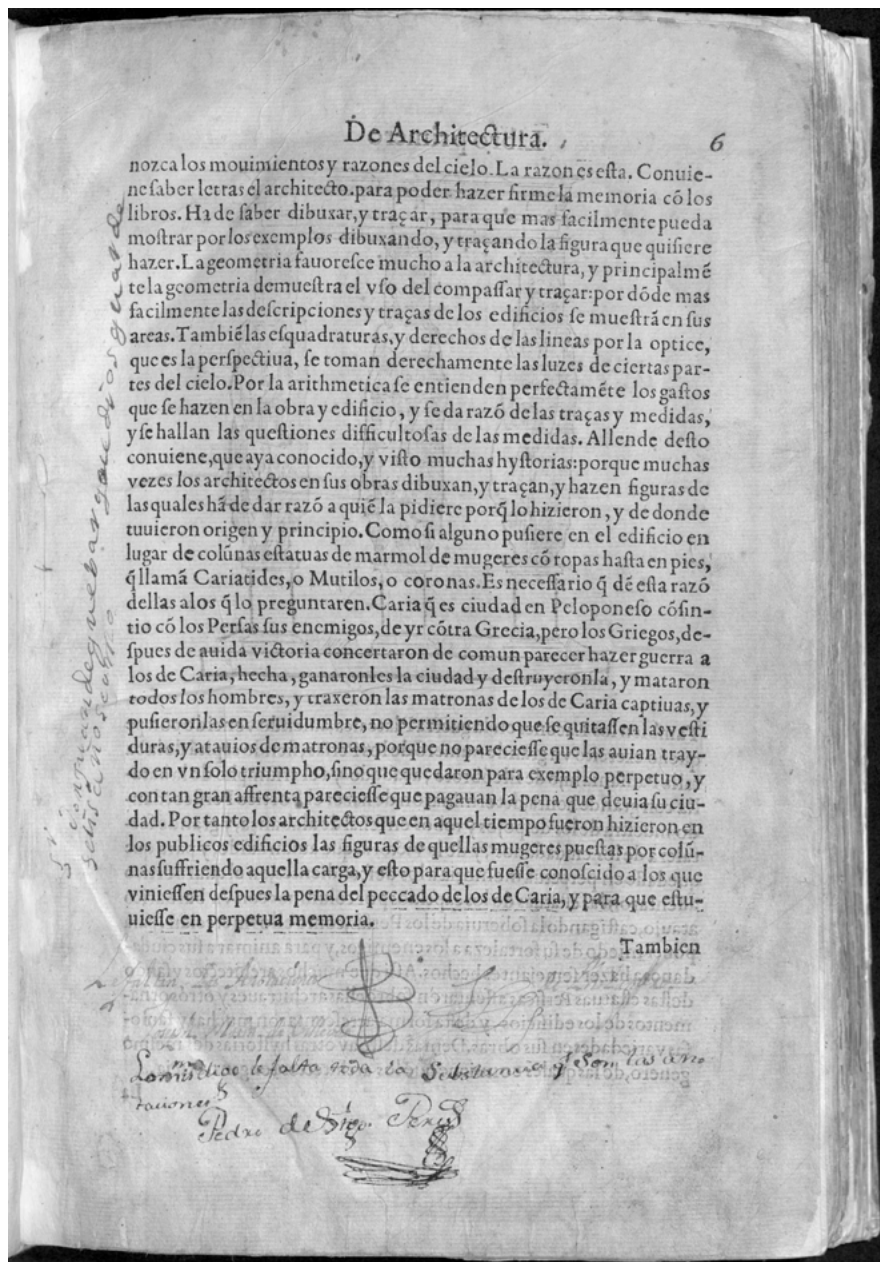 De Architectura. 6
nozca los mouimientos y razones del cielo. La razon es esta. Conuie-
ne saber letras el architecto. para poder hazer firme la memoria cõ los
libros. Ha de saber dibuxar, y traçar, para que mas facilmente pueda
mostrar por los exemplos dibuxando, y traçando la figura que quisiere
hazer. La geometria fauoresce mucho a la architectura, y principalmẽ
te la geometria demuestra el vso del compassar y traçar: por dõde mas
facilmente las descripciones y traças de los edificios se muestrã en sus
areas. Tambiẽ las esquadraturas, y derechos de las lineas por la optice,
que es la perspectiua, se toman derechamente las luzes de ciertas par-
tes del cielo. Por la arithmetica se entienden perfectamẽte los gastos
que se hazen en la obra y edificio, y se da razõ de las traças y medidas,
y se hallan las questiones difficultosas de las medidas. Allende desto
conuiene, que aya conocido, y visto muchas hystorias: porque muchas
vezes los architectos en sus obras dibuxan, y traçan, y hazen figuras de
las quales hã de dar razõ a quiẽ la pidiere porq̃ lo hizieron, y de donde
tuuieron origen y principio. Como si alguno pusiere en el edificio en
lugar de colũnas estatuas de marmol de mugeres cõ ropas hasta en pies,
q̃ llamã Cariatides, o Mutilos, o coronas. Es necessario q̃ dẽ esta razõ
dellas a los q̃ lo preguntaren. Caria q̃ es ciudad en Peloponeso cõsin-
tio cõ los Persas sus enemigos, de yr cõtra Grecia, pero los Griegos, de-
spues de auida victoria concertaron de comun parecer hazer guerra a
los de Caria, hecha, ganaronles la ciudad y destruyeronla, y mataron
todos los hombres, y traxeron las matronas de los de Caria captiuas, y
pusieronlas en seruidumbre, no permitiendo que se quitassen las vesti
duras, y atauios de matronas, porque no pareciesse que las auian tray-
do en vn solo triumpho, sino que quedaron para exemplo perpetuo, y
con tan gran affrenta pareciesse que pagauan la pena que deuia su ciu-
dad. Por tanto los architectos que en aquel tiempo fueron hizieron en
los publicos edificios las figuras de quellas mugeres puestas por colũ-
nas suffriendo aquella carga, y esto para que fuesse conoscido a los que
viniessen despues la pena del peccado de los de Caria, y para que estu-
uiesse en perpetua memoria.
Tambien
falta toda la
taciones
Pedro de